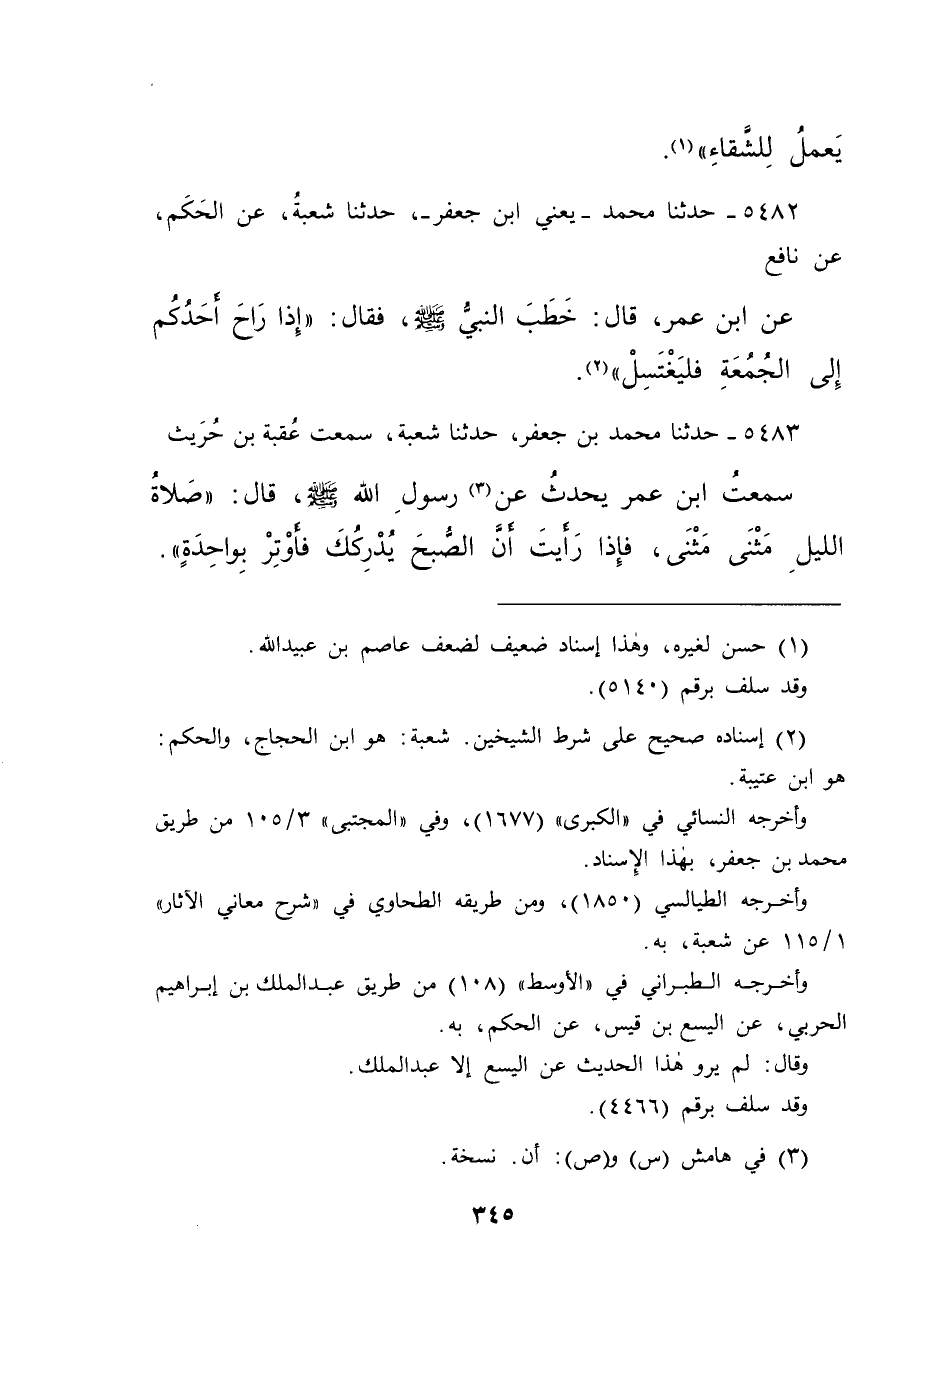 يَعملُ لِلشَّقاءِ»(١).
٥٤٨٢ ـ حدثنا محمد ـ يعني ابن جعفر ـ، حدثنا شعبةُ، عن الحَكَم،
عن نافع
عن ابن عمر، قال: خَطَبَ النبيُّ ﷺ، فقال: «إِذا رَاحَ أَحَدُكُم
إِلى الجُمُعَةِ فليَغْتَسِلْ»(٢).
٥٤٨٣ ـ حدثنا محمد بن جعفر، حدثنا شعبة، سمعت عُقبة بن حُرَيث
سمعتُ ابن عمر يحدثُ عن(٣) رسولِ الله ﷺ، قال: «صَلاةُ
الليلِ مَثْنَى مَثْنَى، فإِذا رَأَيتَ أَنَّ الصُّبحَ يُدْرِكُكَ فأَوْتِرْ بِواحِدَةٍ».
(١) حسن لغيره، وهٰذا إسناد ضعيف لضعف عاصم بن عبيدالله.
وقد سلف برقم (٥١٤٠).
(٢) إسناده صحيح على شرط الشيخين. شعبة: هو ابن الحجاج، والحكم:
هو ابن عتيبة.
وأخرجه النسائي في «الكبرى» (١٦٧٧)، وفي «المجتبى» ١٠٥/٣ من طريق
محمد بن جعفر، بهٰذا الإِسناد.
وأخرجه الطيالسي (١٨٥٠)، ومن طريقه الطحاوي في «شرح معاني الآثار»
١١٥/١ عن شعبة، به.
وأخرجه الطبراني في «الأوسط» (١٠٨) من طريق عبدالملك بن إبراهيم
الحربي، عن اليسع بن قيس، عن الحكم، به.
وقال: لم يرو هٰذا الحديث عن اليسع إلا عبدالملك.
وقد سلف برقم (٤٤٦٦).
(٣) في هامش (س) و(ص): أن. نسخة.
٣٤٥